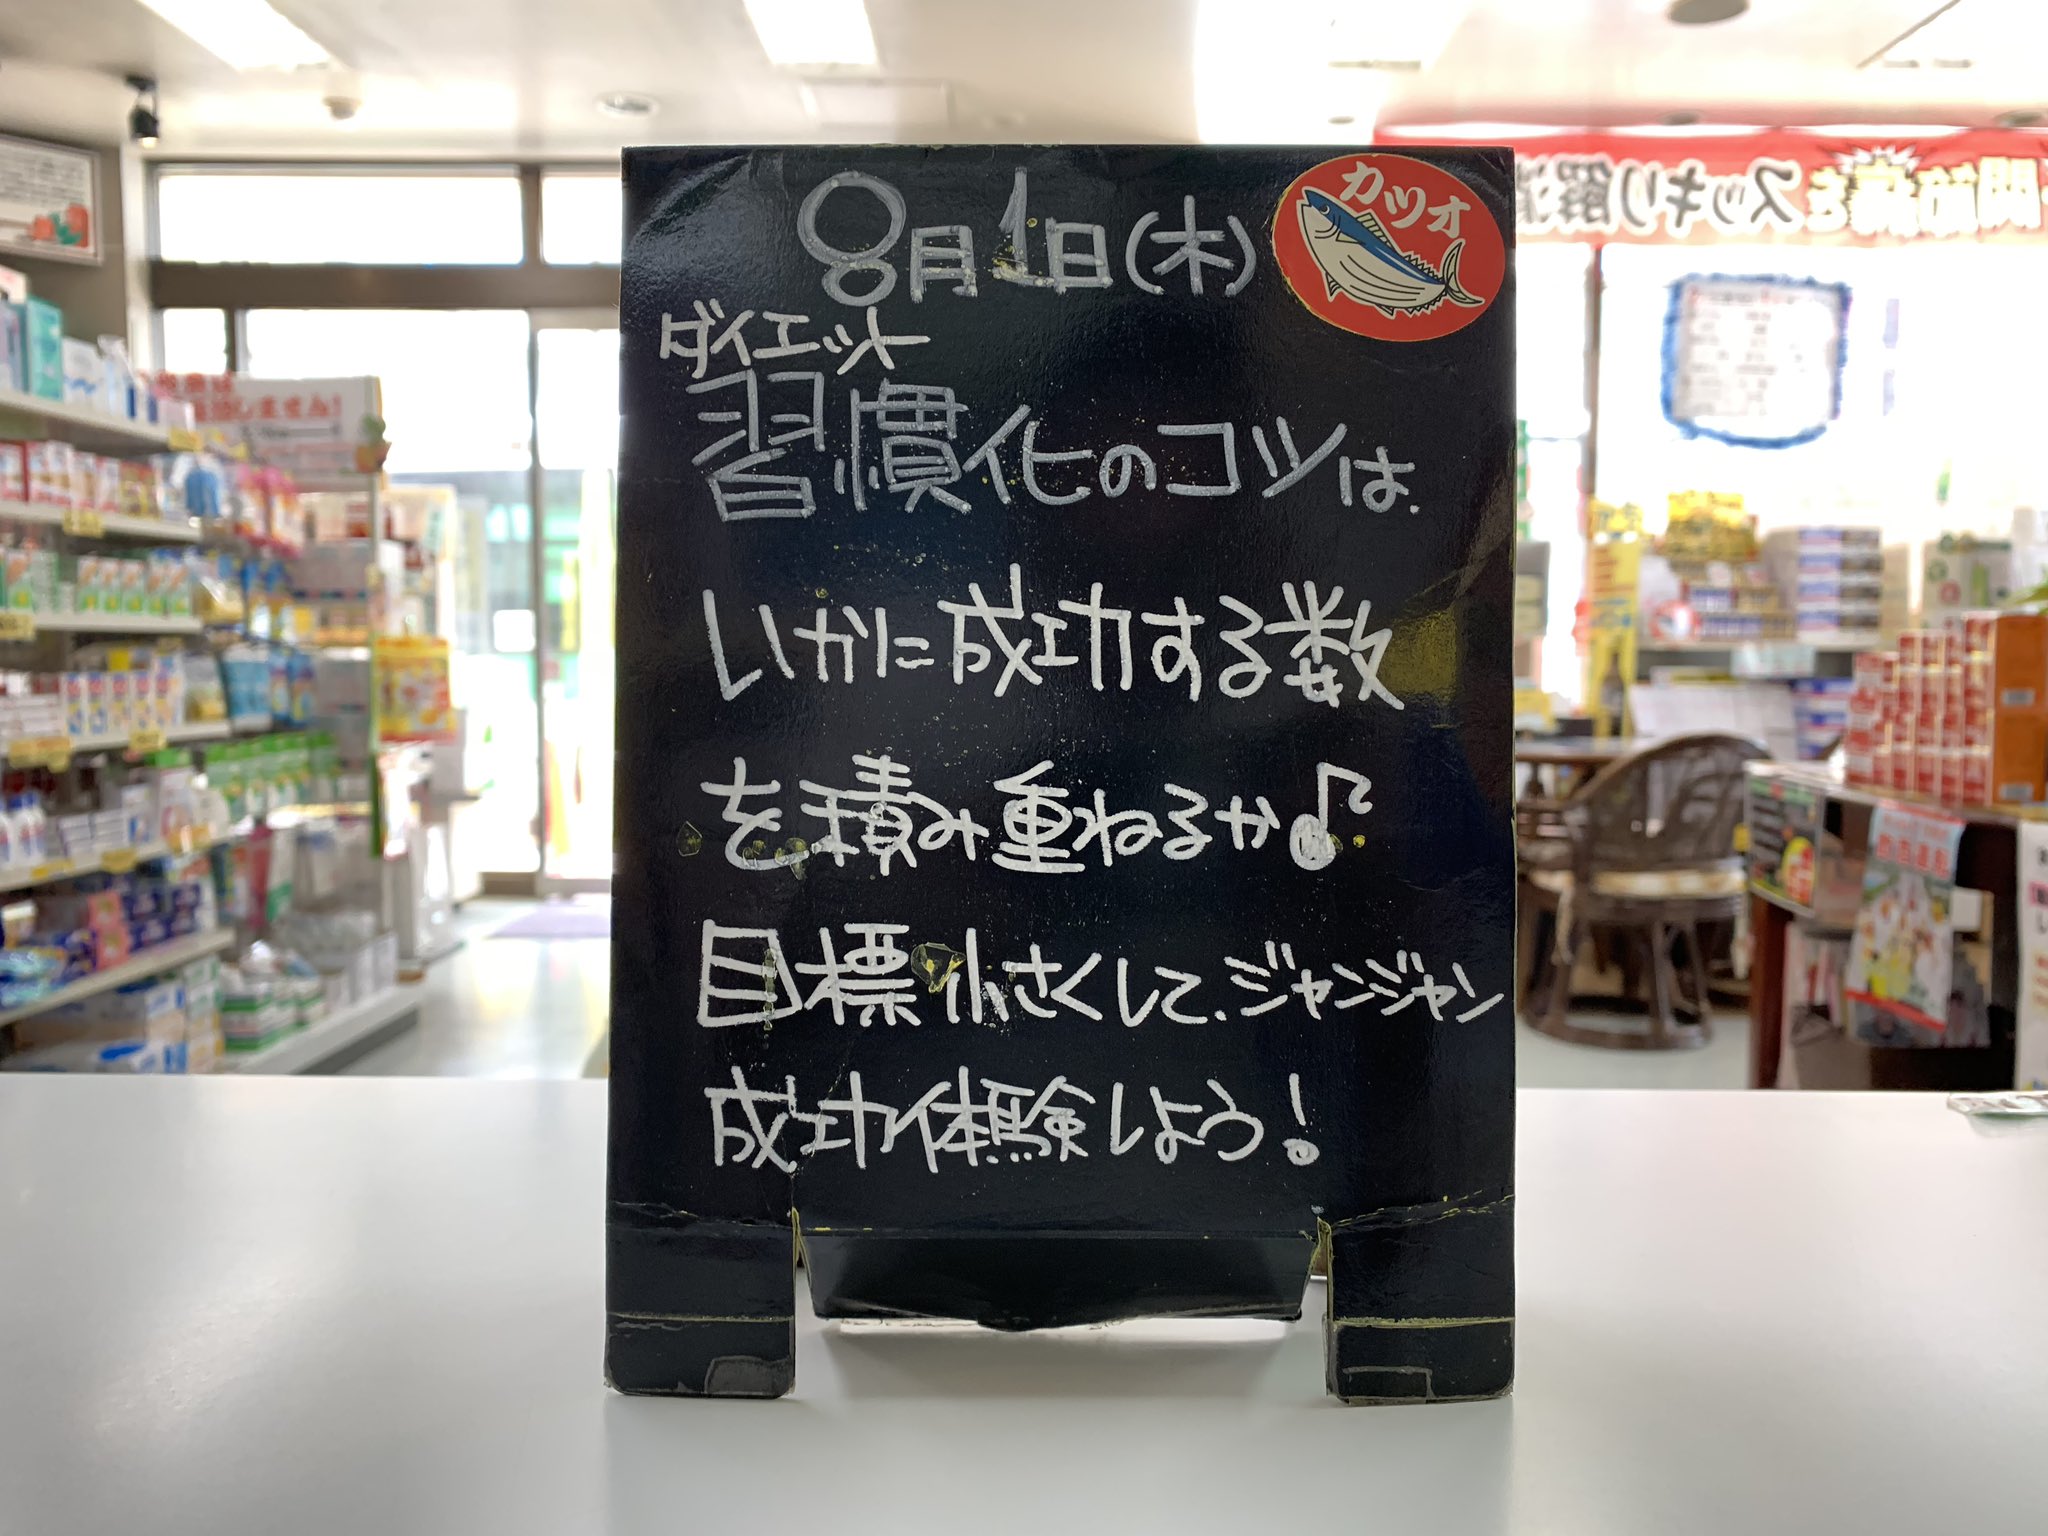 8月1日(木)
カツオ
ダイエット
習慣化のコツは、
いかに成功する数
を積み重ねるか♪
目標小さくして、ジャンジャン
成功体験しよう!
スッキリ解消